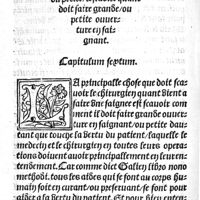 doit faire grande/ou
petite ouuer-
ture en fai-
gnant.
Capitulum sextum.
LA principalle chose que doit sca-
uoir le chirurgien quant vient a
faire vne saignee est scauoir com-
ment il doit faire grande ouuertu-
re en saignant/ou petite daul-
tant que touche la vertu du patient. laquelle le
medecin et le chirurgien en toutes leurs ope-
rations doiuent auoir principallement en leur en-
tendement. Car comme dict Galien libro nono
methodi. tous les aides qui se font au corps hu-
main soit en curant/ou preseruant. se font pour
aider a la vertu du patient. Et pour bien enten-